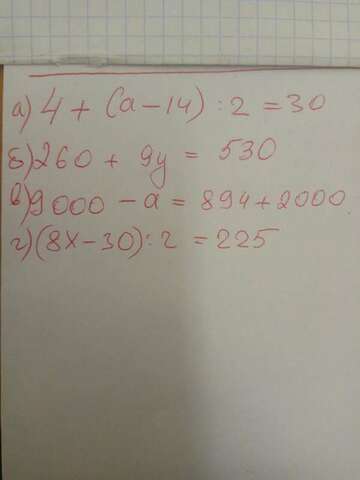 а) 4 + (а - 14) : 2 = 30
б) 260 + 9y = 530
в) 9000 - а = 894 + 2000
г) (8х - 30) : 2 = 225